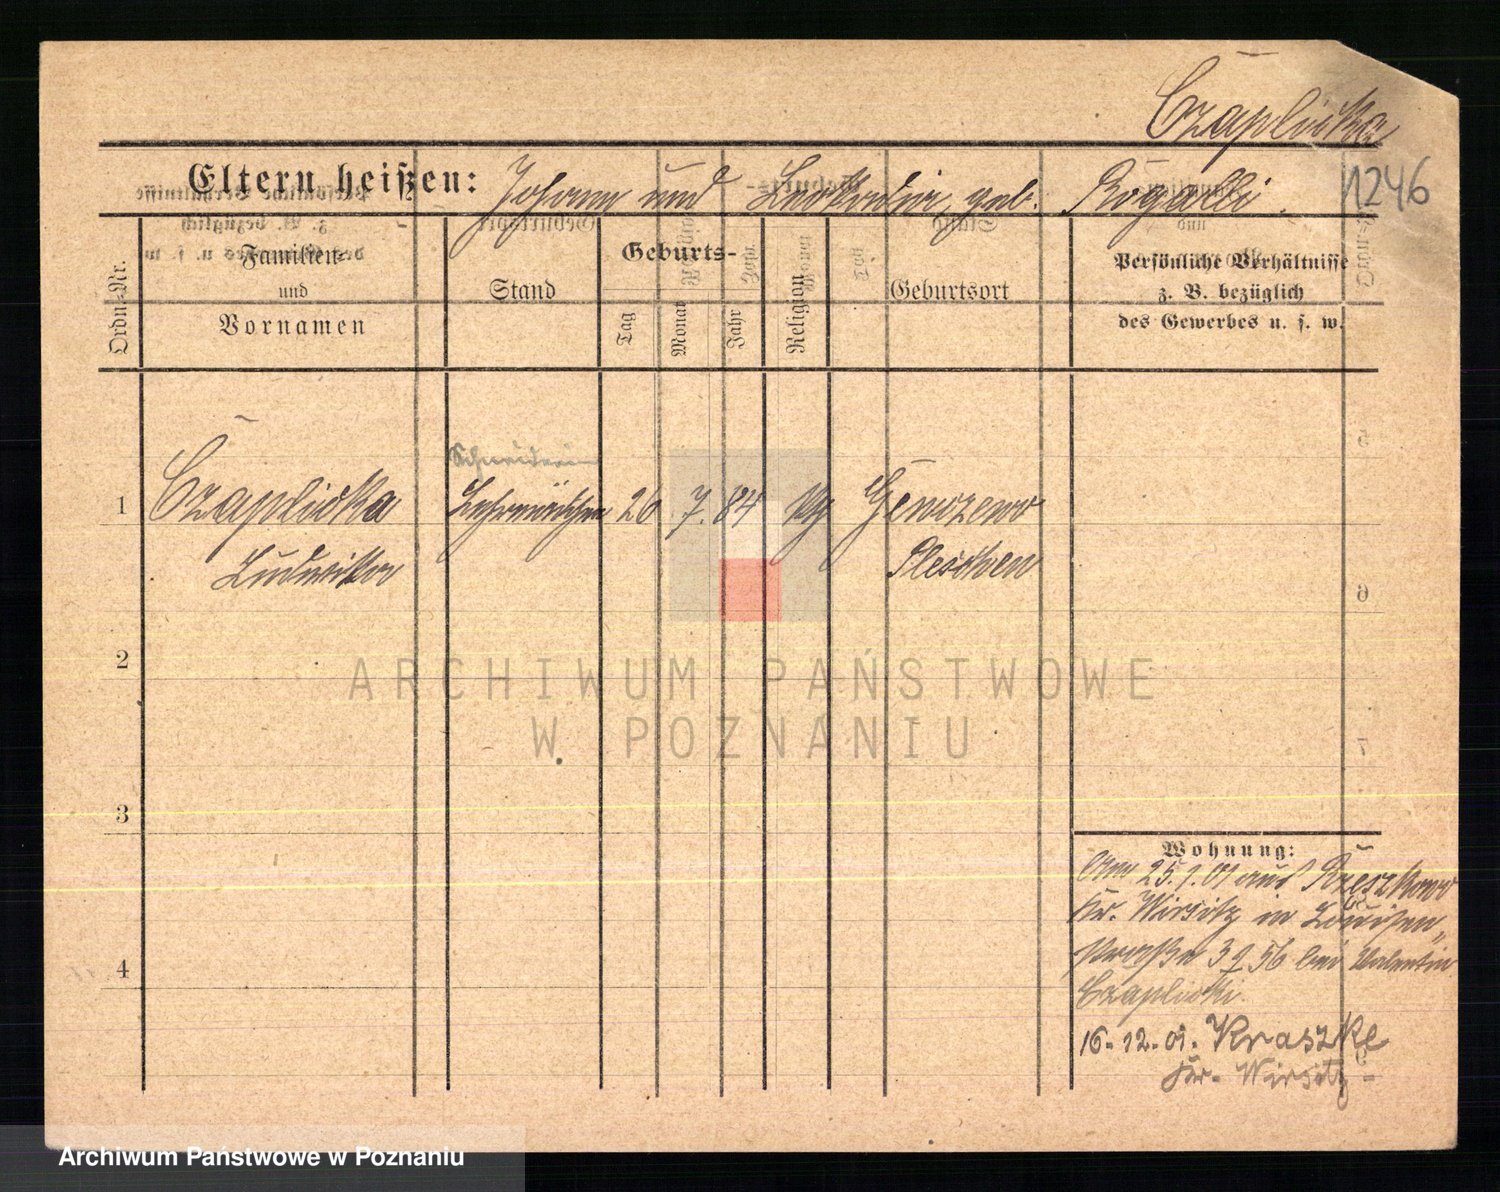 Czaplicka
1246
Eltern heißen: Johann und Leokadia, geb. Rogalli.
Ordn.-Nr.
Familien-
und
Vornamen
Stand
Geburts-
Tag
Monat
Jahr
Religion
Geburtsort
Persönliche Verhältnisse
z. B. bezüglich
des Gewerbes u. s. w.
Schneiderin
1 Czaplicka Lehrmädchen 26 7. 84 Gerwazewo
Ludwika Pleschen
2
3
4
Wohnung:
25.1.01 aus
Kr. Wirsitz in Louisen„
straße 3 9 56 bei Valentin
Czaplicki.
16-12-01. Kraszke
Kr. Wirsitz-
ARCHIWUM PAŃSTWOWE
W POZNANIU
Archiwum Państwowe w Poznaniu